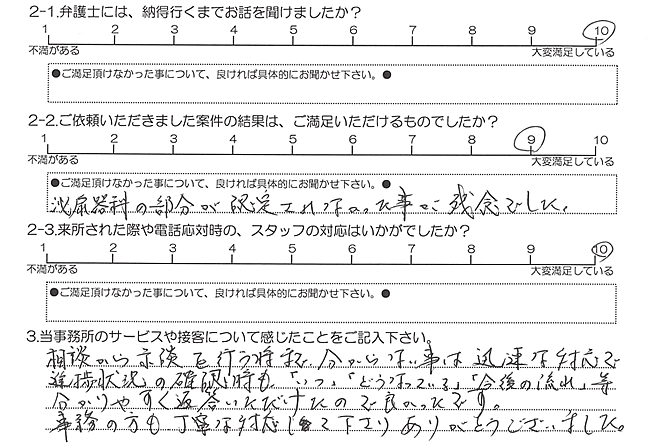 2-1.弁護士には、納得行くまでお話を聞けましたか？
1 2 3 4 5 6 7 8 9 10
不満がある 大変満足している
●ご満足頂けなかった事について、良ければ具体的にお聞かせ下さい。●
2-2.ご依頼いただきました案件の結果は、ご満足いただけるものでしたか？
1 2 3 4 5 6 7 8 9 10
不満がある 大変満足している
●ご満足頂けなかった事について、良ければ具体的にお聞かせ下さい。●
泌尿器科の部分が認定されなかった事が残念でした。
2-3.来所された際や電話応対時の、スタッフの対応はいかがでしたか？
1 2 3 4 5 6 7 8 9 10
不満がある 大変満足している
●ご満足頂けなかった事について、良ければ具体的にお聞かせ下さい。●
3.当事務所のサービスや接客について感じたことをご記入下さい。
相談から示談を行う時まで分からない事は迅速な対応で
進捗状況の確認時も「いつ」「どうなっている」「今後の流れ」等
分かりやすく返答いただけたので良かったです。
事務の方も丁寧な対応して下さりありがとうございました。